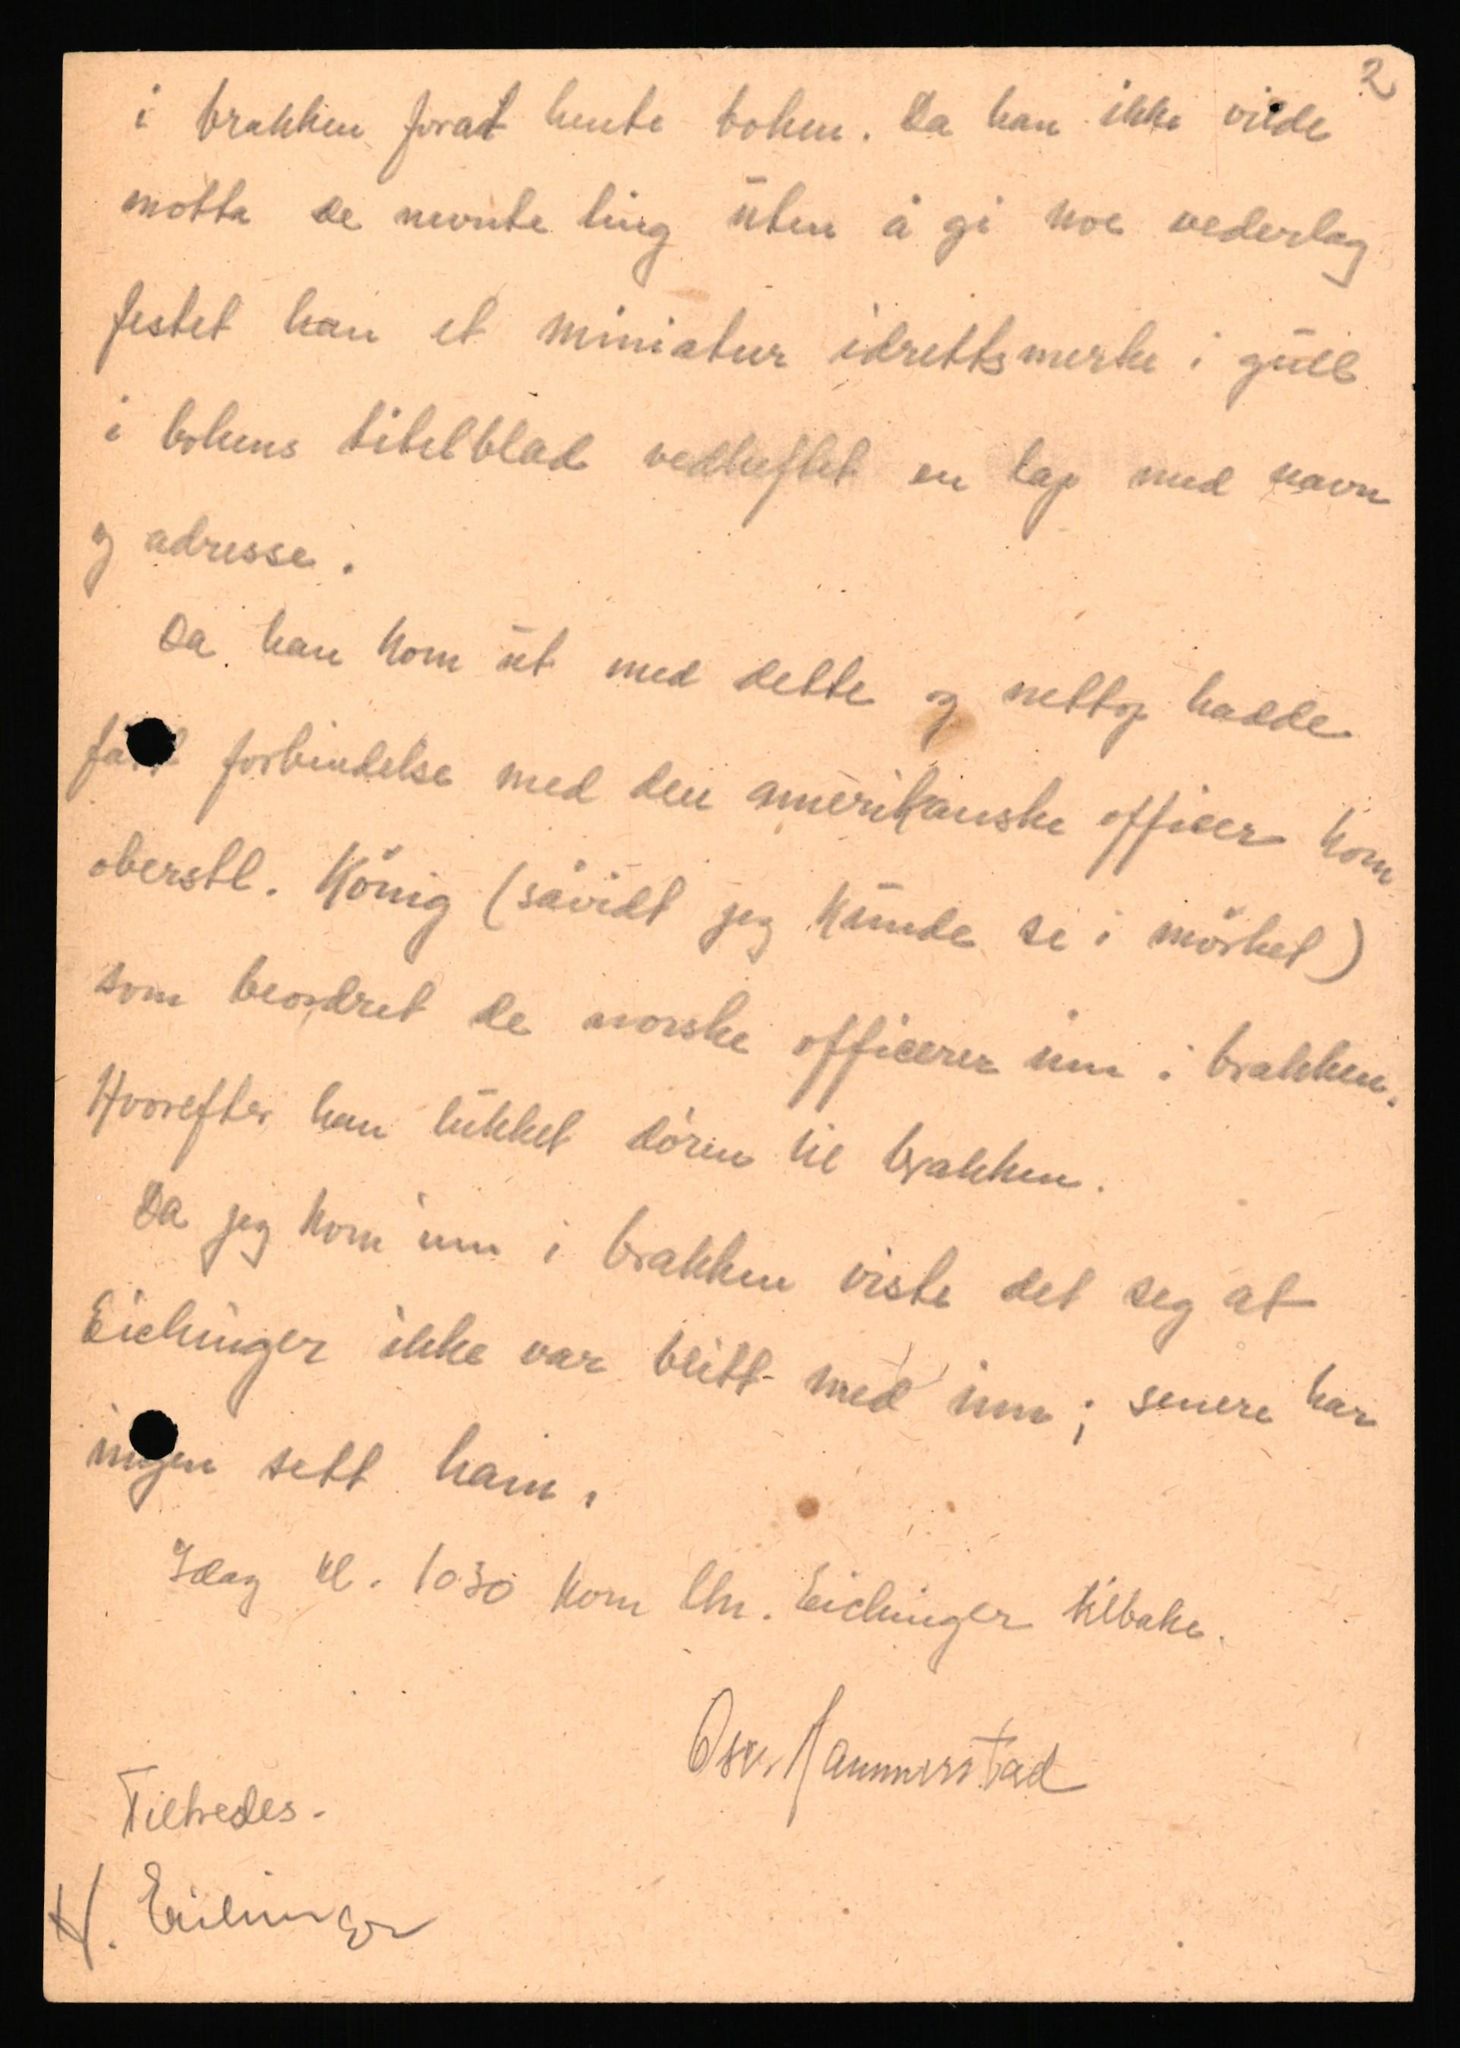 2
i brakken forat hente boken. Da han ikke vilde
motta de nevnte ting uten å gi noe vederlag
festet han et miniatur idrettsmerke i gull
i bokens titelblad vedheftet en lap med navn
og adresse.
Da han kom ut med dette og nettop hadde
fått forbindelse med den amerikanske officer kom
oberstl. König (såvidt jeg kunde se i mörket)
som beordret de norske officerer inn i brakken.
Hvorefter han lukket dören til brakken.
Da jeg kom inn i brakken viste det seg at
Eichinger ikke var blitt med inn; senere har
ingen sett ham.
Idag kl. 1030 kom ltn. Eichinger tilbake.
Osv. Hammerstad
Tiltredes.
H. Eichinger